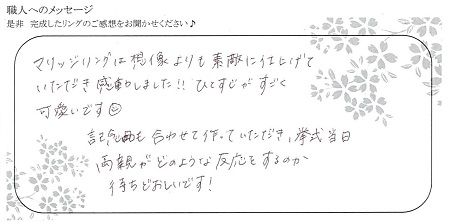 職人へのメッセージ
是非 完成したリングのご感想をお聞かせください♪
マリッジリングは想像よりも素敵に仕上げて
いただき感動しました!! ひとすじがすごく
可愛いです☺
記念品も合わせて作っていただき、挙式当日
両親がどのような反応をするのか
待ちどおしいです!